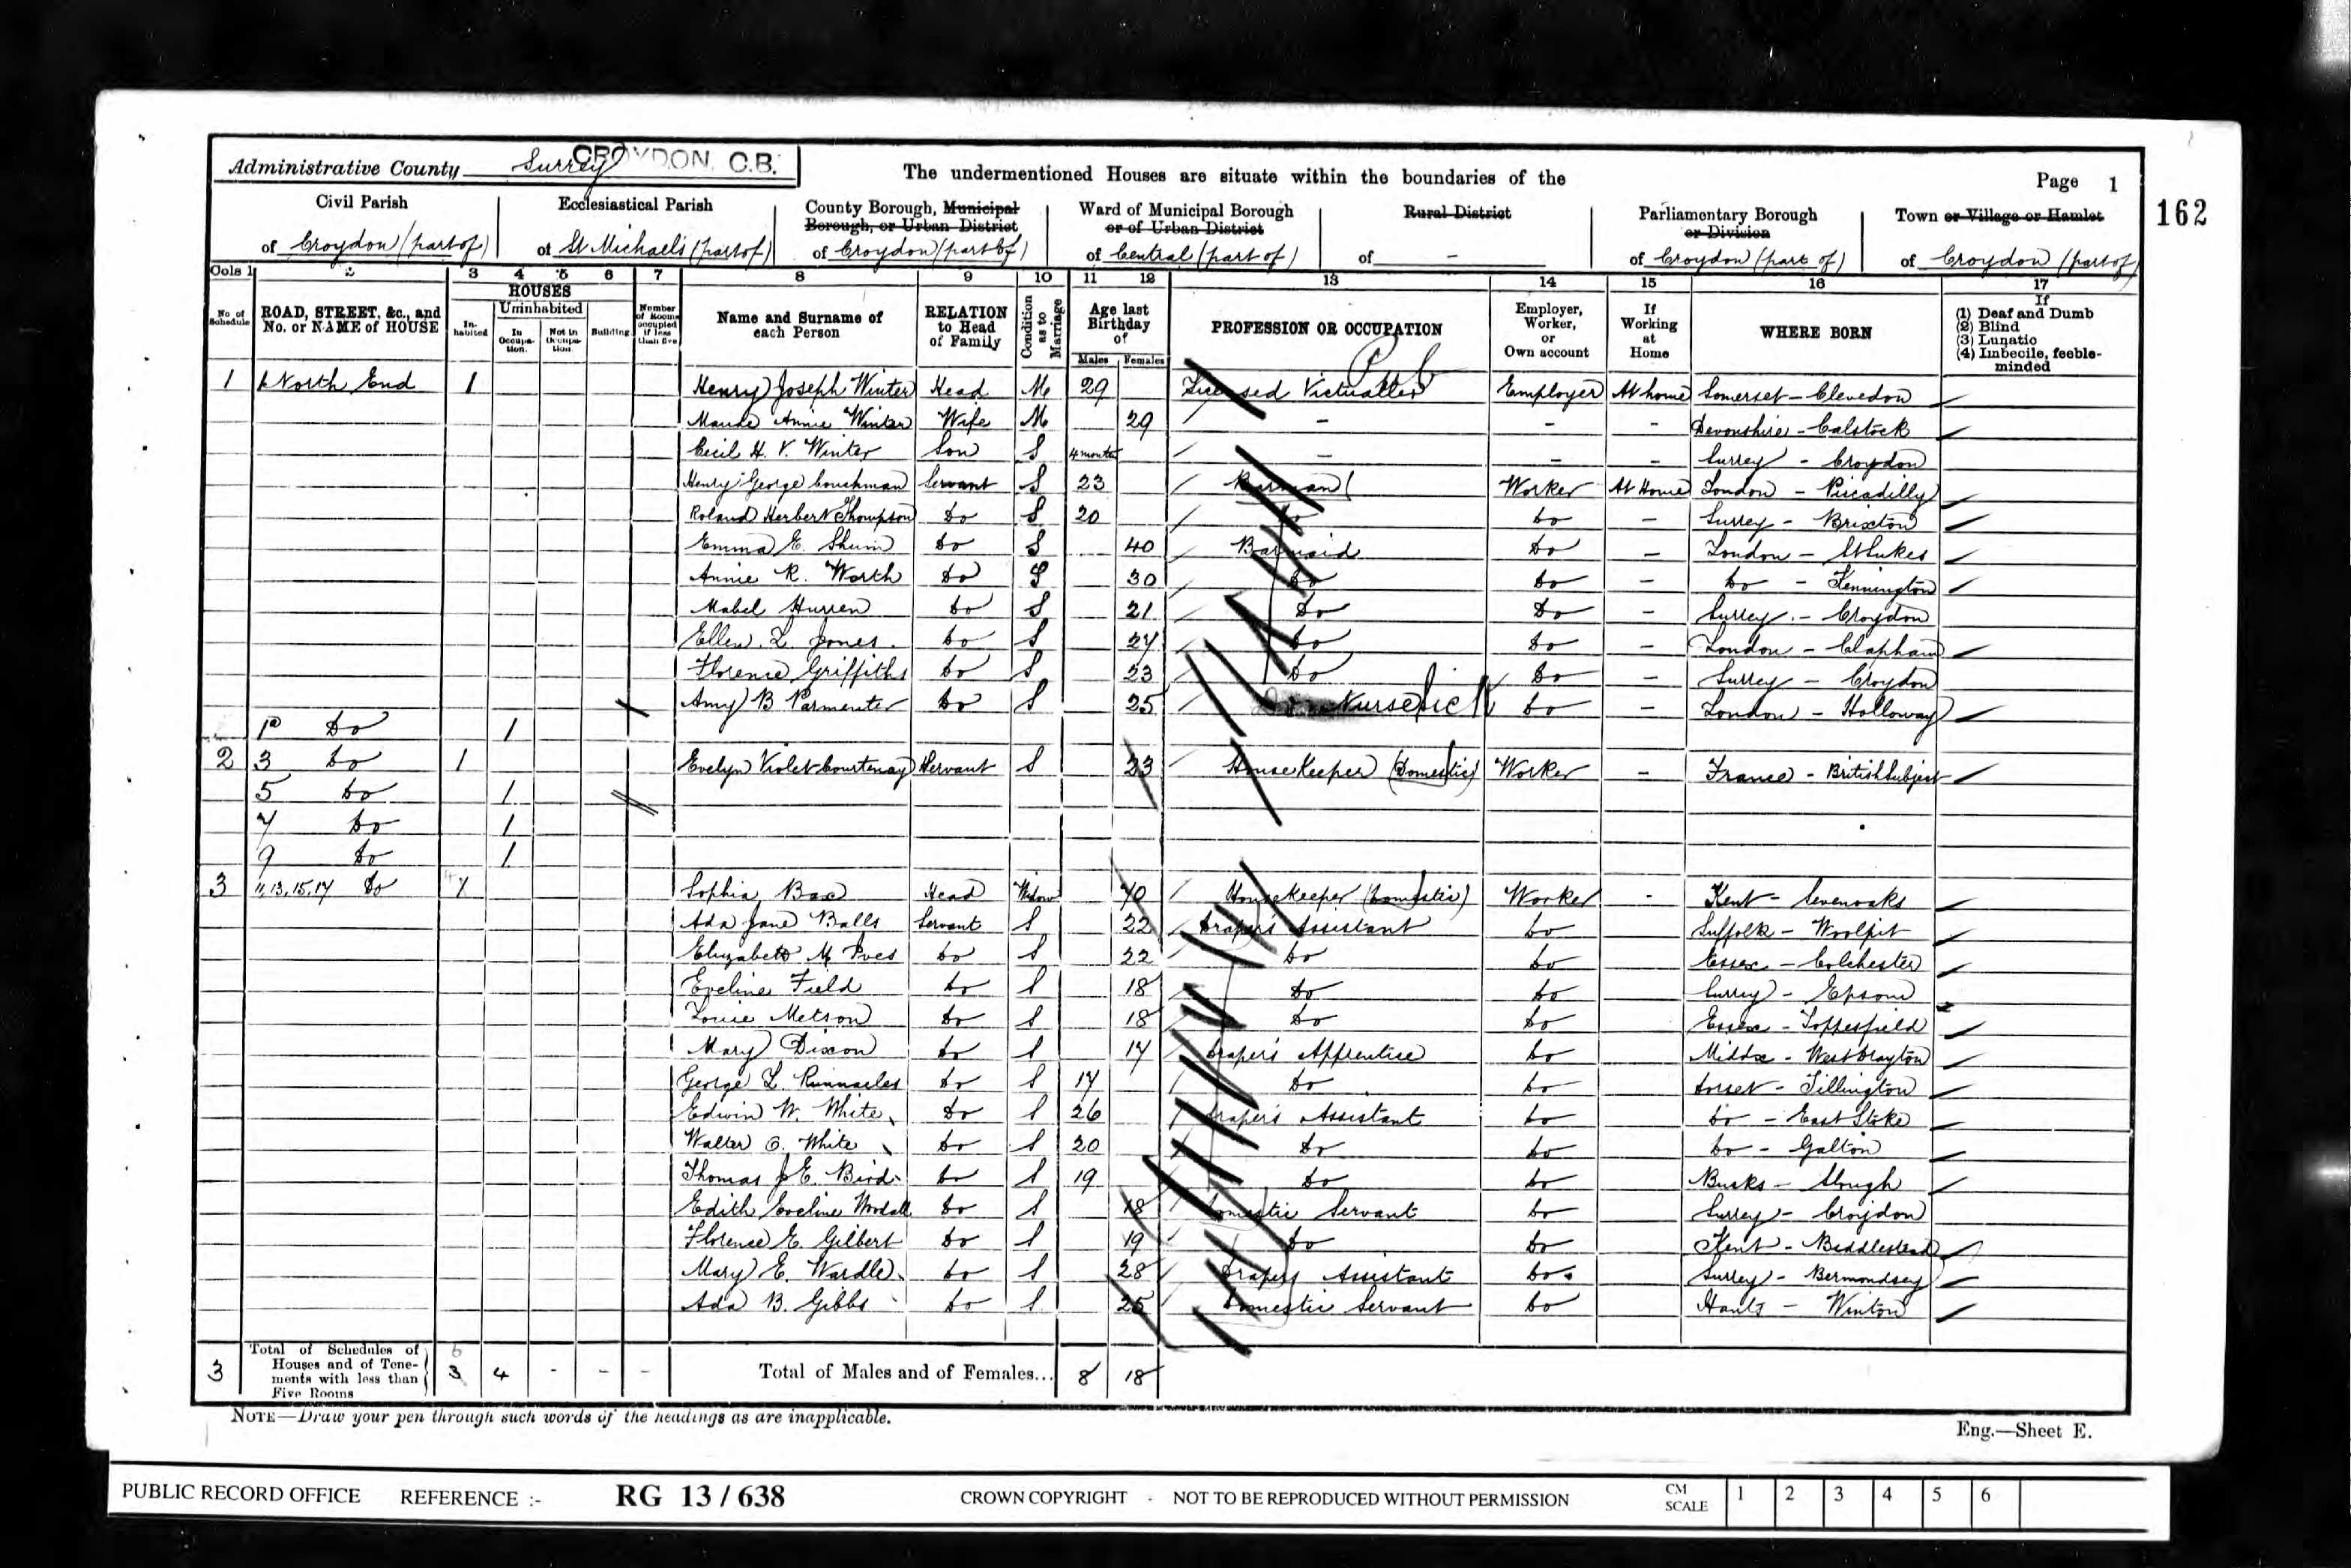 Administrative County Surrey CROYDON. C.B.
The undermentioned Houses are situate within the boundaries of the
Page 1
162
Civil Parish of Croydon (part of)
Ecclesiastical Parish of St Michaels (part of)
County Borough, Municipal Borough, or Urban District of Croydon (part of)
Ward of Municipal Borough or of Urban District of Central (part of)
Rural District of -
Parliamentary Borough or Division of Croydon (part of)
Town or Village or Hamlet of Croydon (part of)
Cols 1 2 3 4 5 6 7 8 9 10 11 12 13 14 15 16 17
No. of Schedule
ROAD, STREET, &c., and No. or NAME of HOUSE
HOUSES
Inhabited
Uninhabited
In Occupation.
Not in Occupation.
Building
Number of Rooms occupied if less than five
Name and Surname of each Person
RELATION to Head of Family
Condition as to Marriage
Age last Birthday of
Males Females
PROFESSION OR OCCUPATION
Employer, Worker, or Own account
If Working at Home
WHERE BORN
If
(1) Deaf and Dumb
(2) Blind
(3) Lunatic
(4) Imbecile, feeble-minded
1 1 North End 1 Henry Joseph Winter Head M 29 Licensed Victualler Pub Employer At home Somerset - Clevedon
Maude Annie Winter Wife M 29 - - - Devonshire - Calstock
Cecil H. V. Winter Son S 4 months - - - Surrey - Croydon
Henry George Couchman Servant S 23 Barman Worker At Home London - Piccadilly
Roland Herbert Thompson Do S 20 Do Do - Surrey - Brixton
Emma E. Do S 40 Barmaid Do - London - St Lukes
Annie R. Worth Do S 30 Do Do - Do - Kennington
Mabel Hurren Do S 21 Do Do - Surrey - Croydon
Ellen L. Jones Do S 24 Do Do - London - Clapham
Florence Griffiths Do S 23 Do Do - Surrey - Croydon
Amy B Parmenter Do S 25 Nurse Do - London - Holloway
1a Do 1
2 3 Do 1 Evelyn Violet Courtenay Servant S 23 Housekeeper (Domestic) Worker - France - British Subject
5 Do 1
7 Do 1
9 Do 1
3 11, 13, 15, 17 Do Sophia Bax Head Widow 70 Housekeeper (Domestic) Worker - Kent - Sevenoaks
Ada Jane Balls Servant S 22 Drapers Assistant Do Suffolk - Woolpit
Elizabeth M Ives Do S 22 Do Do Essex - Colchester
Eveline Field Do S 18 Do Do Surrey - Epsom
Louie Metson Do S 18 Do Do Essex - Toppesfield
Mary Dixon Do S 17 Drapers Apprentice Do Middx - West Drayton
George L. Do S 17 Do Do Dorset - Tillington
Edwin W. White Do S 26 Drapers Assistant Do Do - East Stoke
Walter White Do S 20 Do Do Do - Galton
Thomas J E. Bird Do S 19 Do Do Bucks - Slough
Edith Eveline Do S 18 Domestic Servant Do Surrey - Croydon
Florence E. Gilbert Do S 19 Do Do Kent -
Mary E. Wardle Do S 28 Drapers Assistant Do Surrey - Bermondsey
Ada B. Gibbs Do S 25 Domestic Servant Do Hants - Winton
3 Total of Schedules of Houses and of Tenements with less than Five Rooms 6 3 4 - - - Total of Males and of Females... 8 18
NOTE—Draw your pen through such words of the headings as are inapplicable.
Eng.—Sheet E.
PUBLIC RECORD OFFICE REFERENCE :- RG 13 / 638 CROWN COPYRIGHT - NOT TO BE REPRODUCED WITHOUT PERMISSION CM SCALE 1 2 3 4 5 6